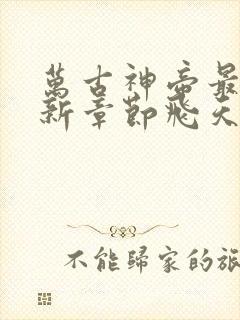 萬古神帝最
新章節飛天
不能歸家的旅